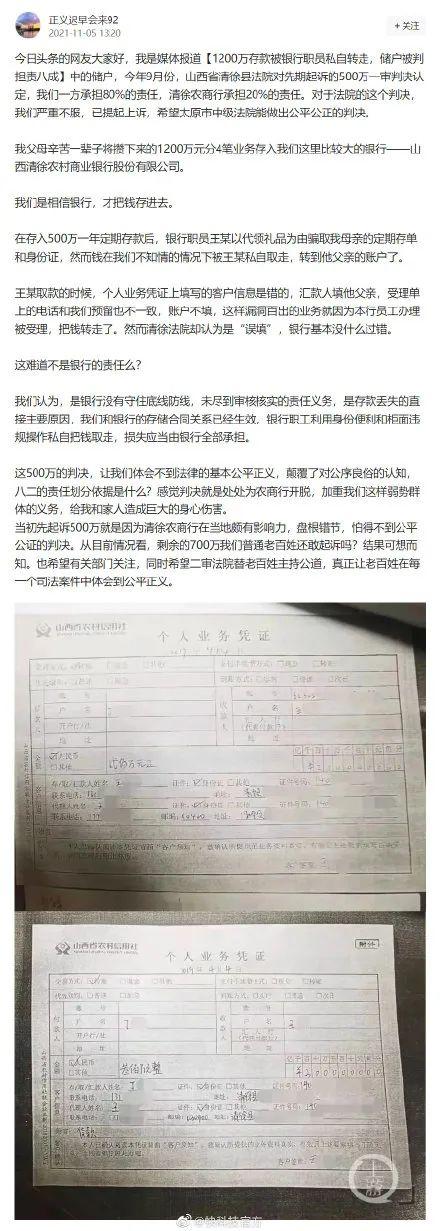 正义迟早会来92
2021-11-05 13:20
+ 关注
今日头条的网友大家好，我是媒体报道【1200万存款被银行职员私自转走，储户被判
担责八成】中的储户，今年9月份，山西省清徐县法院对先期起诉的500万一审判决认
定，我们一方承担80%的责任，清徐农商行承担20%的责任。对于法院的这个判决，
我们严重不服，已提起上诉，希望太原市中级法院能做出公平公正的判决.
我父母辛苦一辈子将攒下来的1200万元分4笔业务存入我们这里比较大的银行——山
西清徐农村商业银行股份有限公司。
我们是相信银行，才把钱存进去。
在存入500万一年定期存款后，银行职员王某以代领礼品为由骗取我母亲的定期存单
和身份证，然而钱在我们不知情的情况下被王某私自取走，转到他父亲的账户了。
王某取款的时候，个人业务凭证上填写的客户信息是错的，汇款人填他父亲，受理单
上的电话和我们预留也不一致，账户不填，这样漏洞百出的业务就因为本行员工办理
被受理，把钱转走了。然而清徐法院却认为是“误填”，银行基本没什么过错。
这难道不是银行的责任么？
我们认为，是银行没有守住底线防线，未尽到审核核实的责任义务，是存款丢失的直
接主要原因，我们和银行的存储合同关系已经生效，银行职工利用身份便利和柜面违
规操作私自把钱取走，损失应当由银行全部承担。
这500万的判决，让我们体会不到法律的基本公平正义，颠覆了对公序良俗的认知，
八二的责任划分依据是什么？感觉判决就是处处为农商行开脱，加重我们这样弱势群
体的义务，给我和家人造成巨大的身心伤害。
当初先起诉500万就是因为清徐农商行在当地颇有影响力，盘根错节，怕得不到公平
公证的判决。从目前情况看，剩余的700万我们普通老百姓还敢起诉吗？结果可想而
知。也希望有关部门关注，同时希望二审法院替老百姓主持公道，真正让老百姓在每
一个司法案件中体会到公平正义。
山西省农村信用社
个人业务凭证
账 号
户 名
开户行/社
地 址
人民币
其他
证件号码
联系电话
代理人姓名
联系电话
山西省农村信用社
个人业务凭证
附件
2019年4月4日
账 号
户 名
开户行/社
地 址
人民币
其他
叁佰万整
联系电话
代理人姓名
联系电话
客户签名
@快科技官方